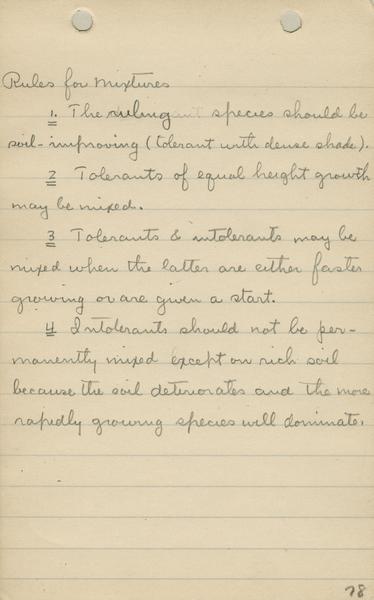 Rules for Mixtures
1. The ruling species should be
soil-improving (tolerant with dense shade).
2 Tolerants of equal height growth
may be mixed.
3 Tolerants & intolerants may be
mixed when the latter are either faster
growing or are given a start.
4 Intolerants should not be per-
manently mixed except on rich soil
because the soil deteriorates and the more
rapidly growing species will dominate.
78